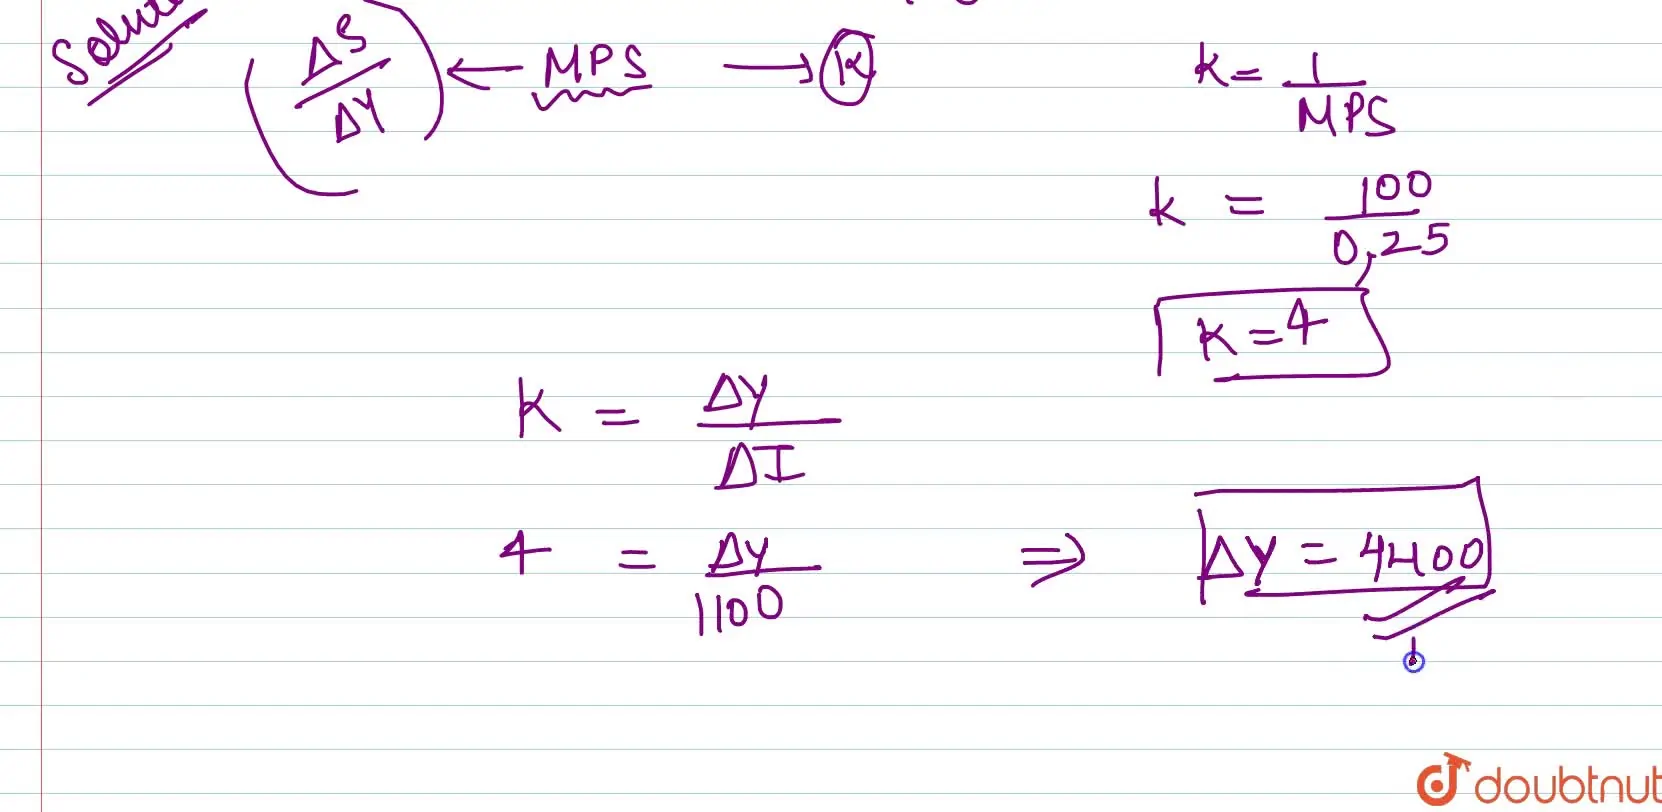 Solution
ΔS/ΔY ← MPS → K
k = 1/MPS
k = 100/0.25
K = 4
K = ΔY/ΔI
4 = ΔY/1100 ⇒ ΔY = 4400
doubtnut